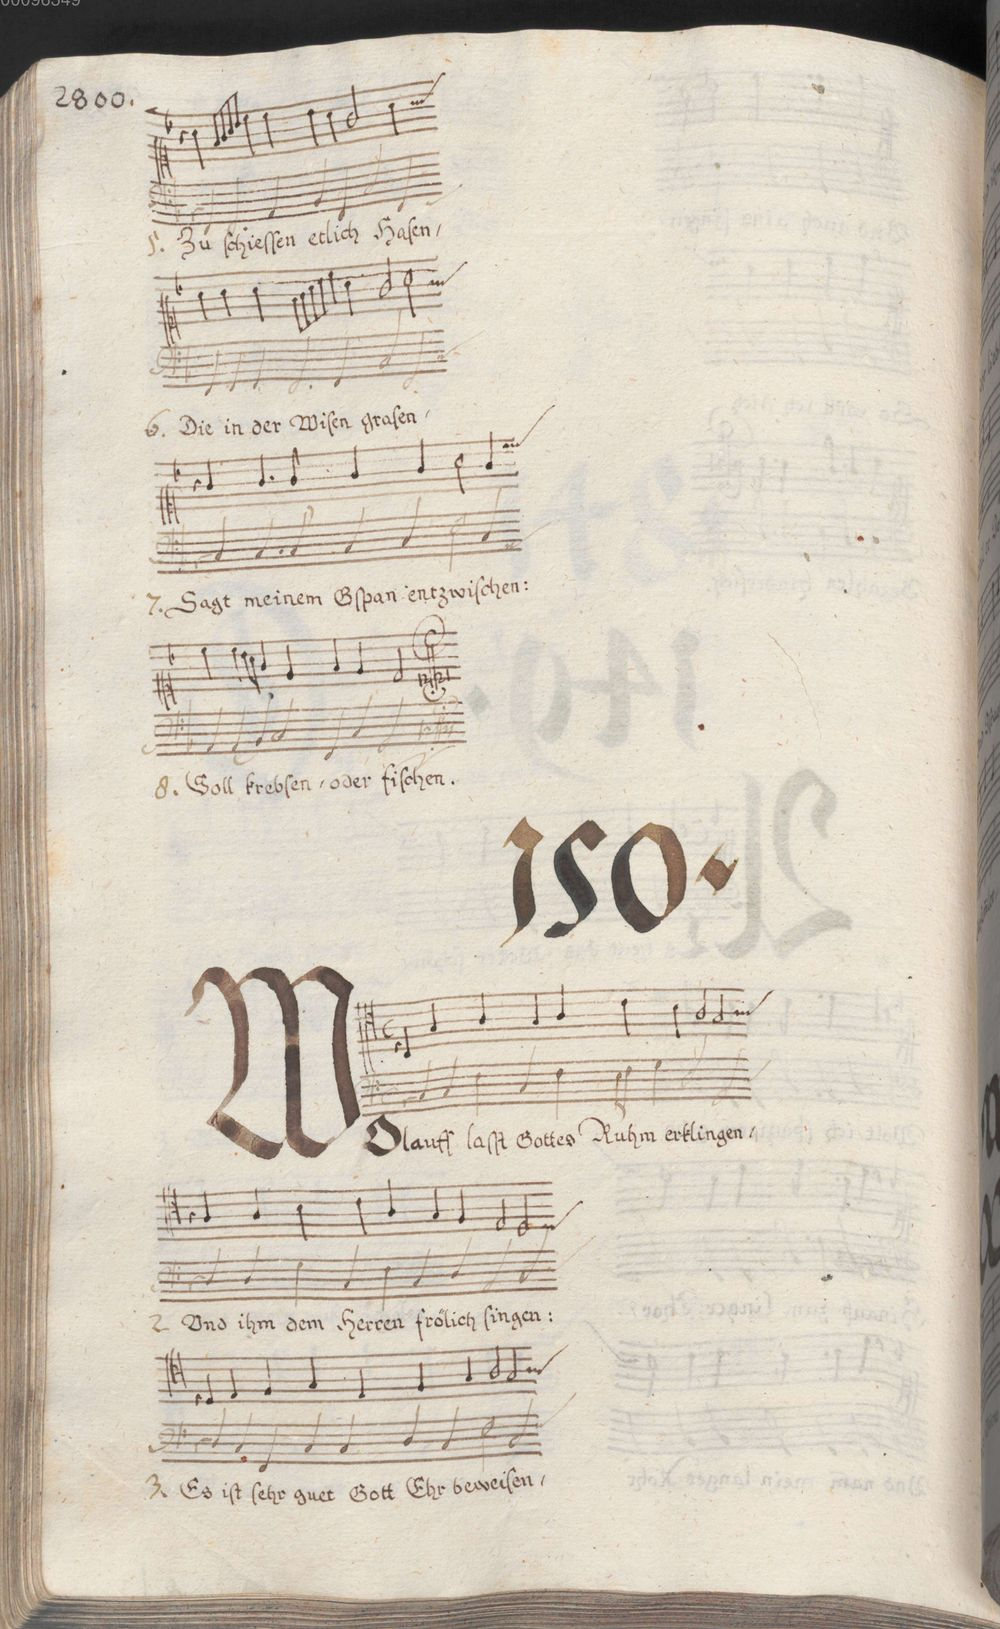 2800.
5. Zu schiessen etlich Hasen,
6. Die in der Wisen grasen,
7. Sagt meinem Gspan entzwischen:
8. Soll krebsen, oder fischen.
150.
WOlauff lasst Gottes Ruhm erklingen,
2 Und ihm dem Herren frölich singen:
3. Es ist sehr guet Gott Ehr beweisen,